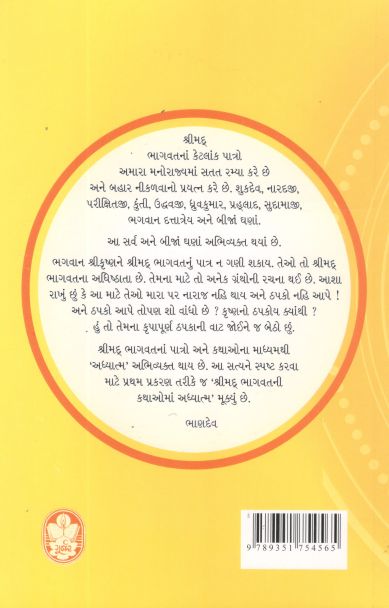 શ્રીમદ્
ભાગવતનાં કેટલાંક પાત્રો
અમારા મનોરાજ્યમાં સતત રમ્યા કરે છે
અને બહાર નીકળવાનો પ્રયત્ન કરે છે. શુકદેવ, નારદજી,
પરીક્ષિતજી, કુંતી, ઉદ્ધવજી, ધ્રુવકુમાર, પ્રહ્લાદ, સુદામાજી,
ભગવાન દત્તાત્રેય અને બીજાં ઘણાં.
આ સર્વ અને બીજાં ઘણાં અભિવ્યક્ત થયાં છે.
ભગવાન શ્રીકૃષ્ણને શ્રીમદ્ ભાગવતનું પાત્ર ન ગણી શકાય. તેઓ તો શ્રીમદ્
ભાગવતના અધિષ્ઠાતા છે. તેમના માટે તો અનેક ગ્રંથોની રચના થઈ છે. આશા
રાખું છું કે આ માટે તેઓ મારા પર નારાજ નહિ થાય અને ઠપકો નહિ આપે !
અને ઠપકો આપે તોપણ શો વાંધો છે ? કૃષ્ણનો ઠપકોય ક્યાંથી ?
હું તો તેમના કૃપાપૂર્ણ ઠપકાની વાટ જોઈને જ બેઠો છું.
શ્રીમદ્ ભાગવતનાં પાત્રો અને કથાઓના માધ્યમથી
‘અધ્યાત્મ’ અભિવ્યક્ત થાય છે. આ સત્યને સ્પષ્ટ કરવા
માટે પ્રથમ પ્રકરણ તરીકે જ ‘શ્રીમદ્ ભાગવતની
કથાઓમાં અધ્યાત્મ’ મૂક્યું છે.
ભાણદેવ
ગુર્જર
9 789351 754565